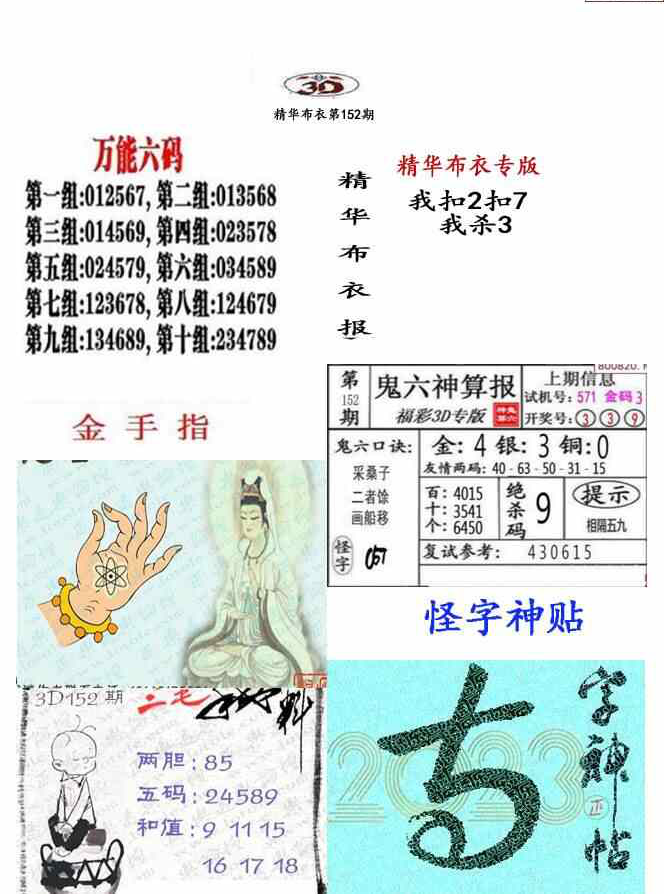 3D
精华布衣第152期
万能六码
第一组:012567,第二组:013568
第三组:014569,第四组:023578
第五组:024579,第六组:034589
第七组:123678,第八组:124679
第九组:134689,第十组:234789
精华布衣报
精华布衣专版
我扣2扣7
我杀3
金手指
第152期
鬼六神算报
福彩3D专版
上期信息
试机号:571 金码3
开奖号:③③⑨
鬼六口诀:
采桑子
二者馀
画船移
怪字
金:4 银:3 铜:0
友情两码:40-63-50-31-15
百:4015
十:3541
个:6450
绝杀码
9
提示
相隔五九
复试参考: 430615
怪字神贴
3D152期
二毛
两胆:85
五码:24589
和值:9 11 15
16 17 18
2023
字神帖
正